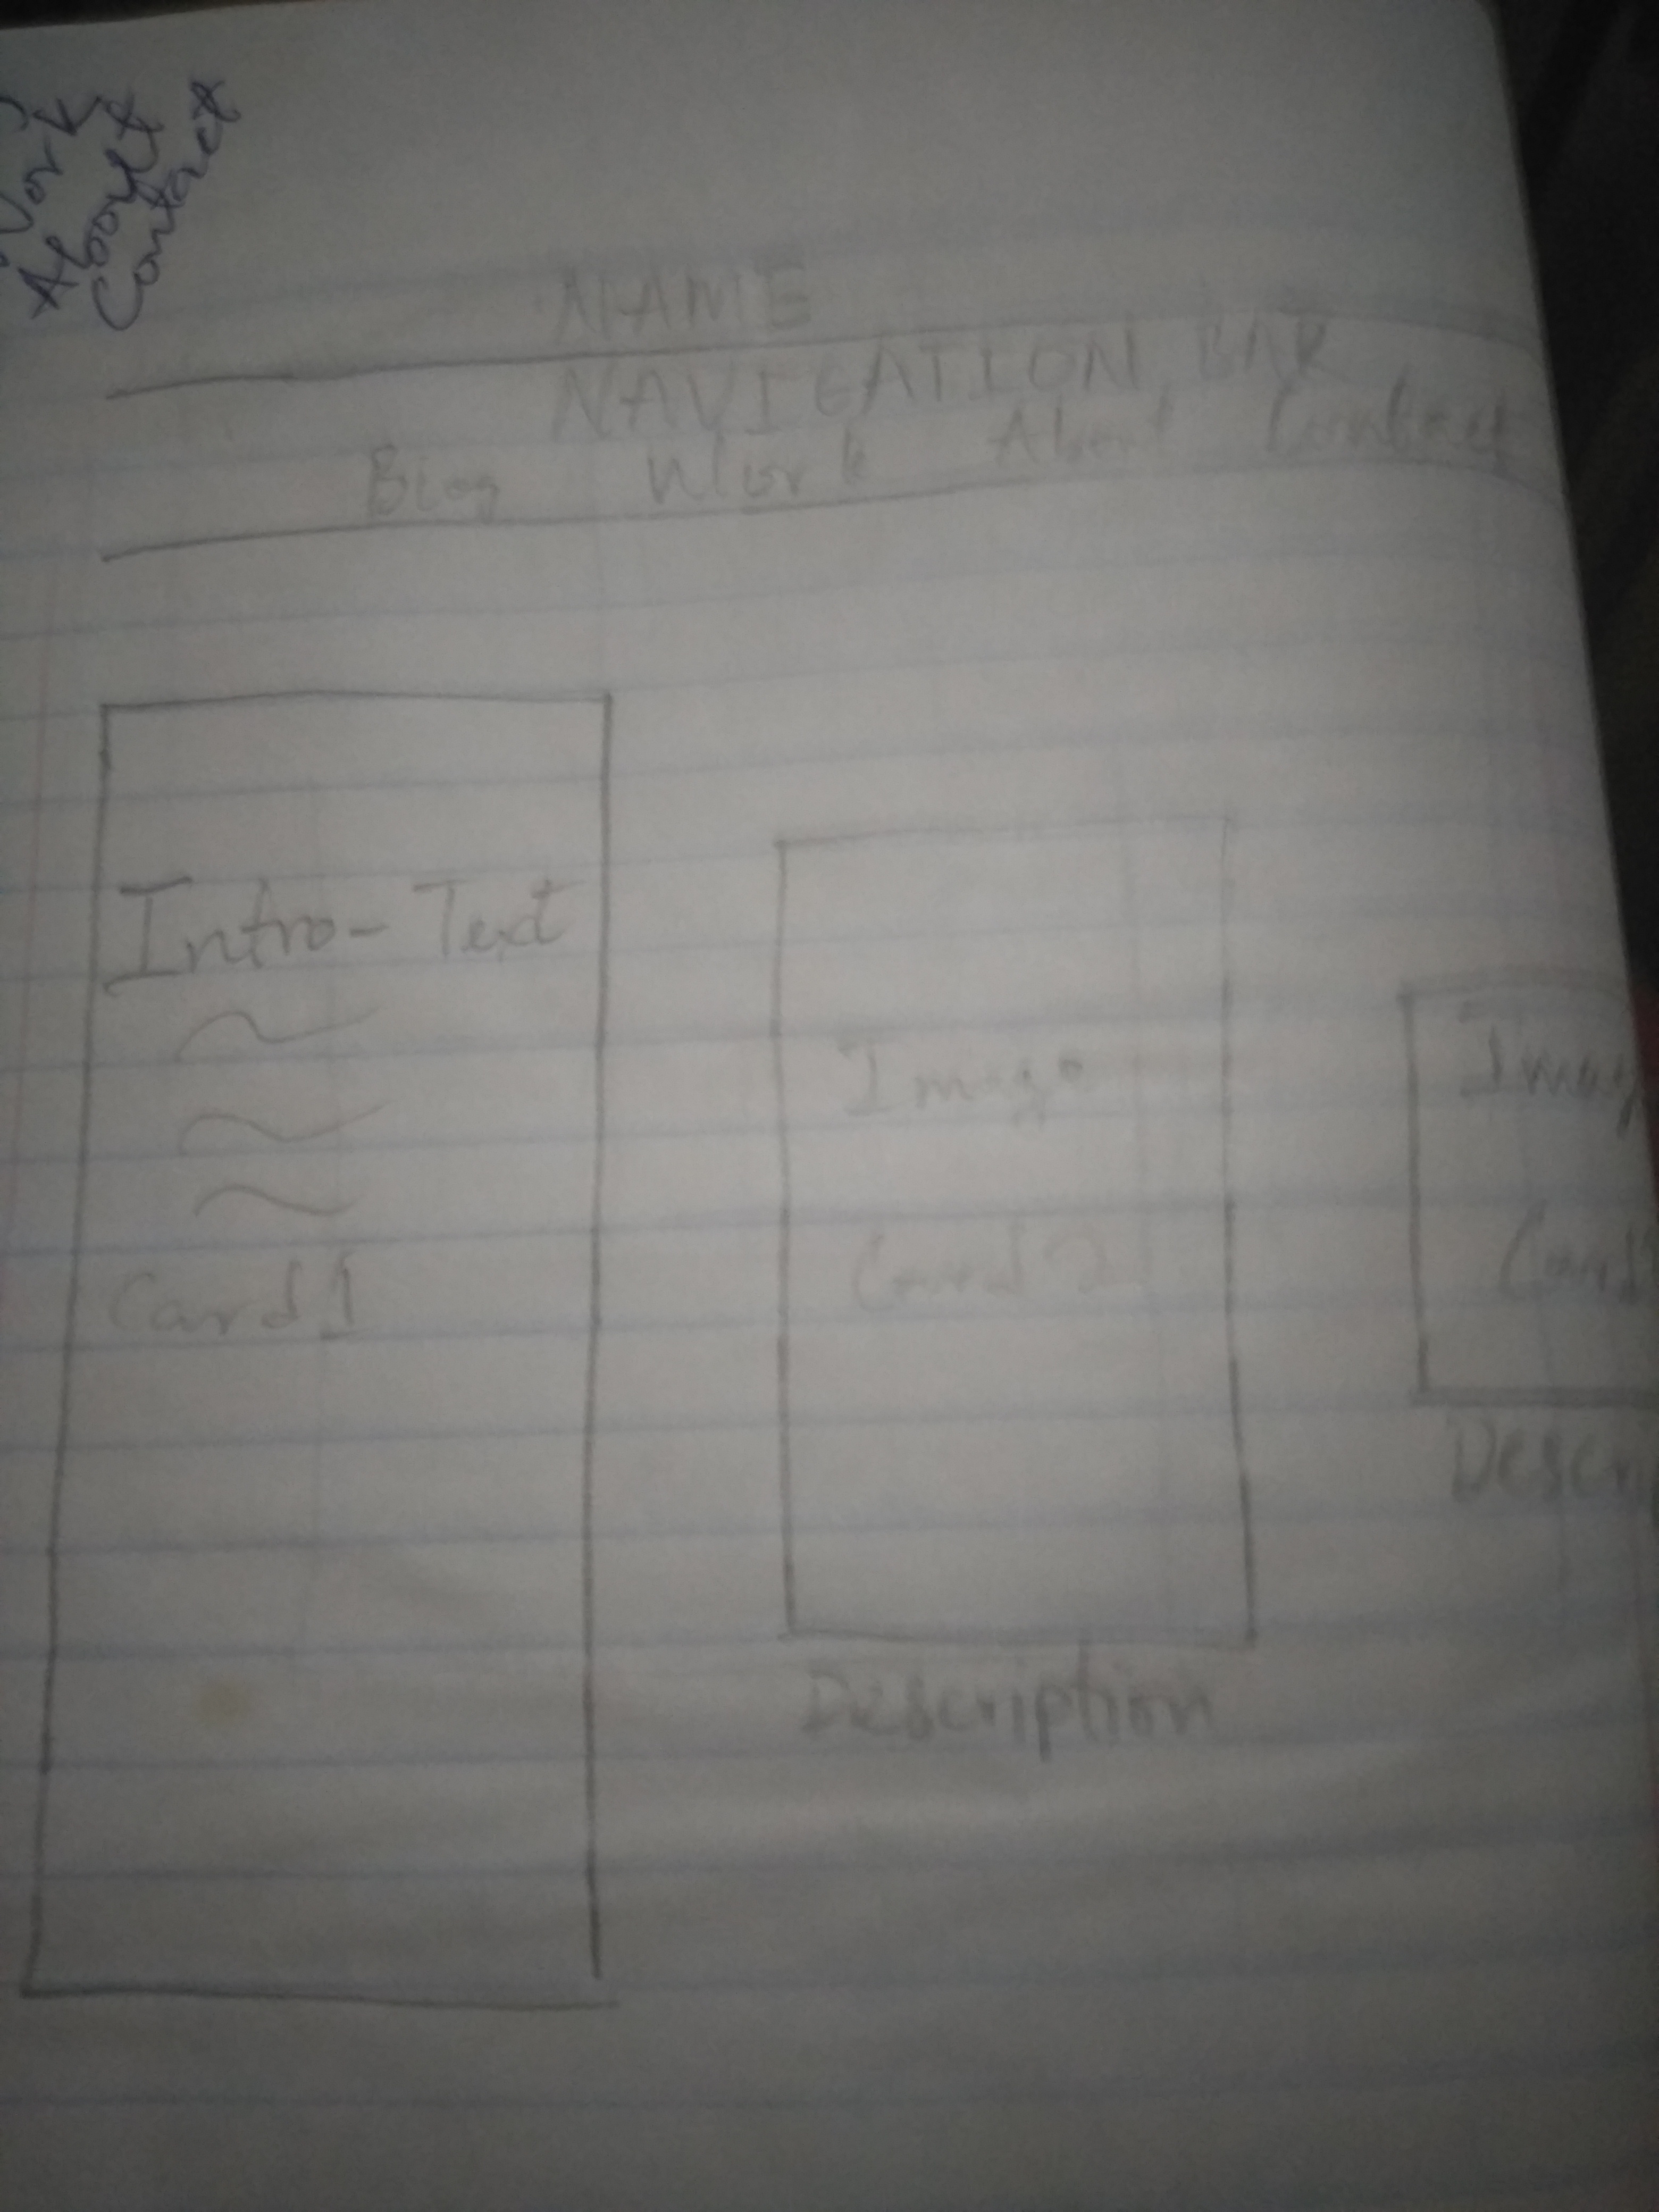 Work
About
Contact
NAME
NAVIGATION BAR
Blog Work About Contact
Intro-Text
Card 1
Image
Card 2
Description
Imag
Card
Descri